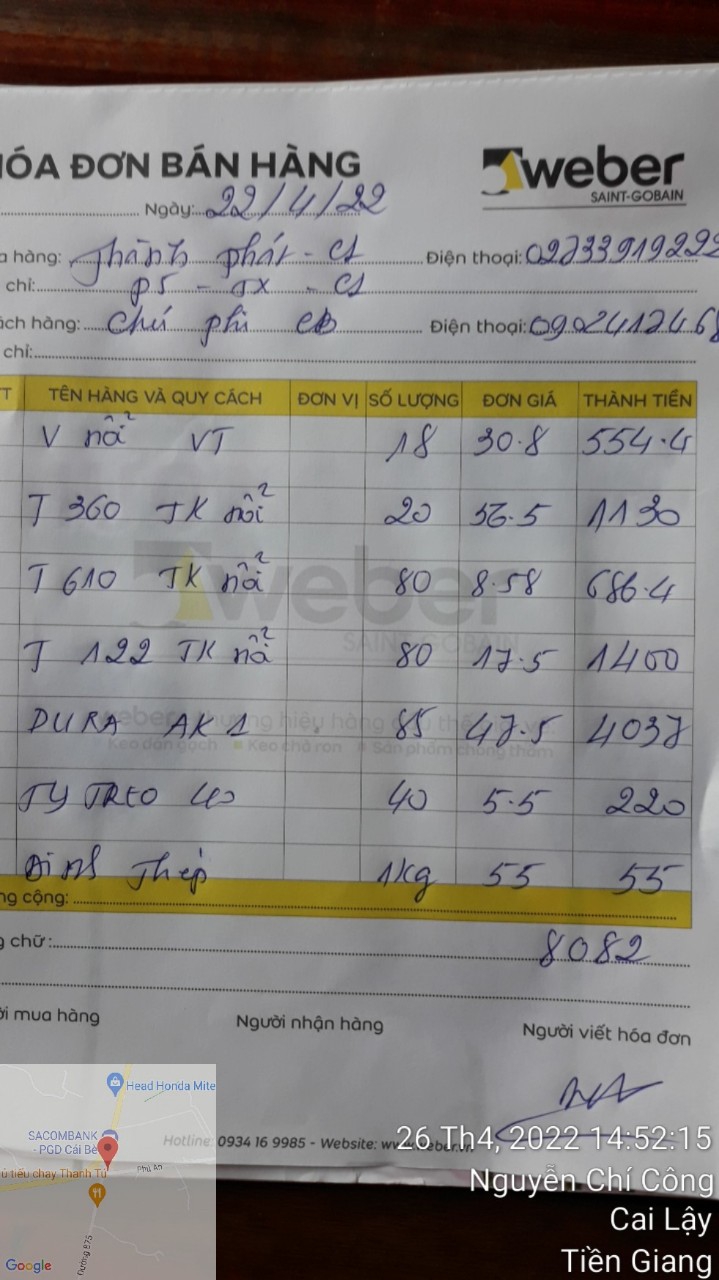 HÓA ĐƠN BÁN HÀNG
weber
SAINT-GOBAIN
Ngày: 22/4/22
a hàng: Thành phát - CL Điện thoại: 02733919292
chỉ: P5 - TX - CL
ách hàng: Chú phi CB Điện thoại: 090241246
chỉ:
T TÊN HÀNG VÀ QUY CÁCH ĐƠN VỊ SỐ LƯỢNG ĐƠN GIÁ THÀNH TIỀN
V nổi VT 18 30.8 554.4
T 360 TK nổi 20 56.5 1130
T 610 TK nổi 80 8.58 686.4
T 122 TK nổi 80 17.5 1400
DURA AK 1 85 47.5 4037
TY TREO 40 40 5.5 220
Đinh Thép 1kg 55 55
ng cộng:
g chữ: 8082
ời mua hàng Người nhận hàng Người viết hóa đơn
Hotline: 0934 16 9985 - Website: www.weber.vn
Head Honda Mite
SACOMBANK
- PGD Cái Bè
ủ tiếu chay, Thanh Tu
Phú An
Đường 875
Google
26 Th4, 2022 14:52:15
Nguyễn Chí Công
Cai Lậy
Tiền Giang